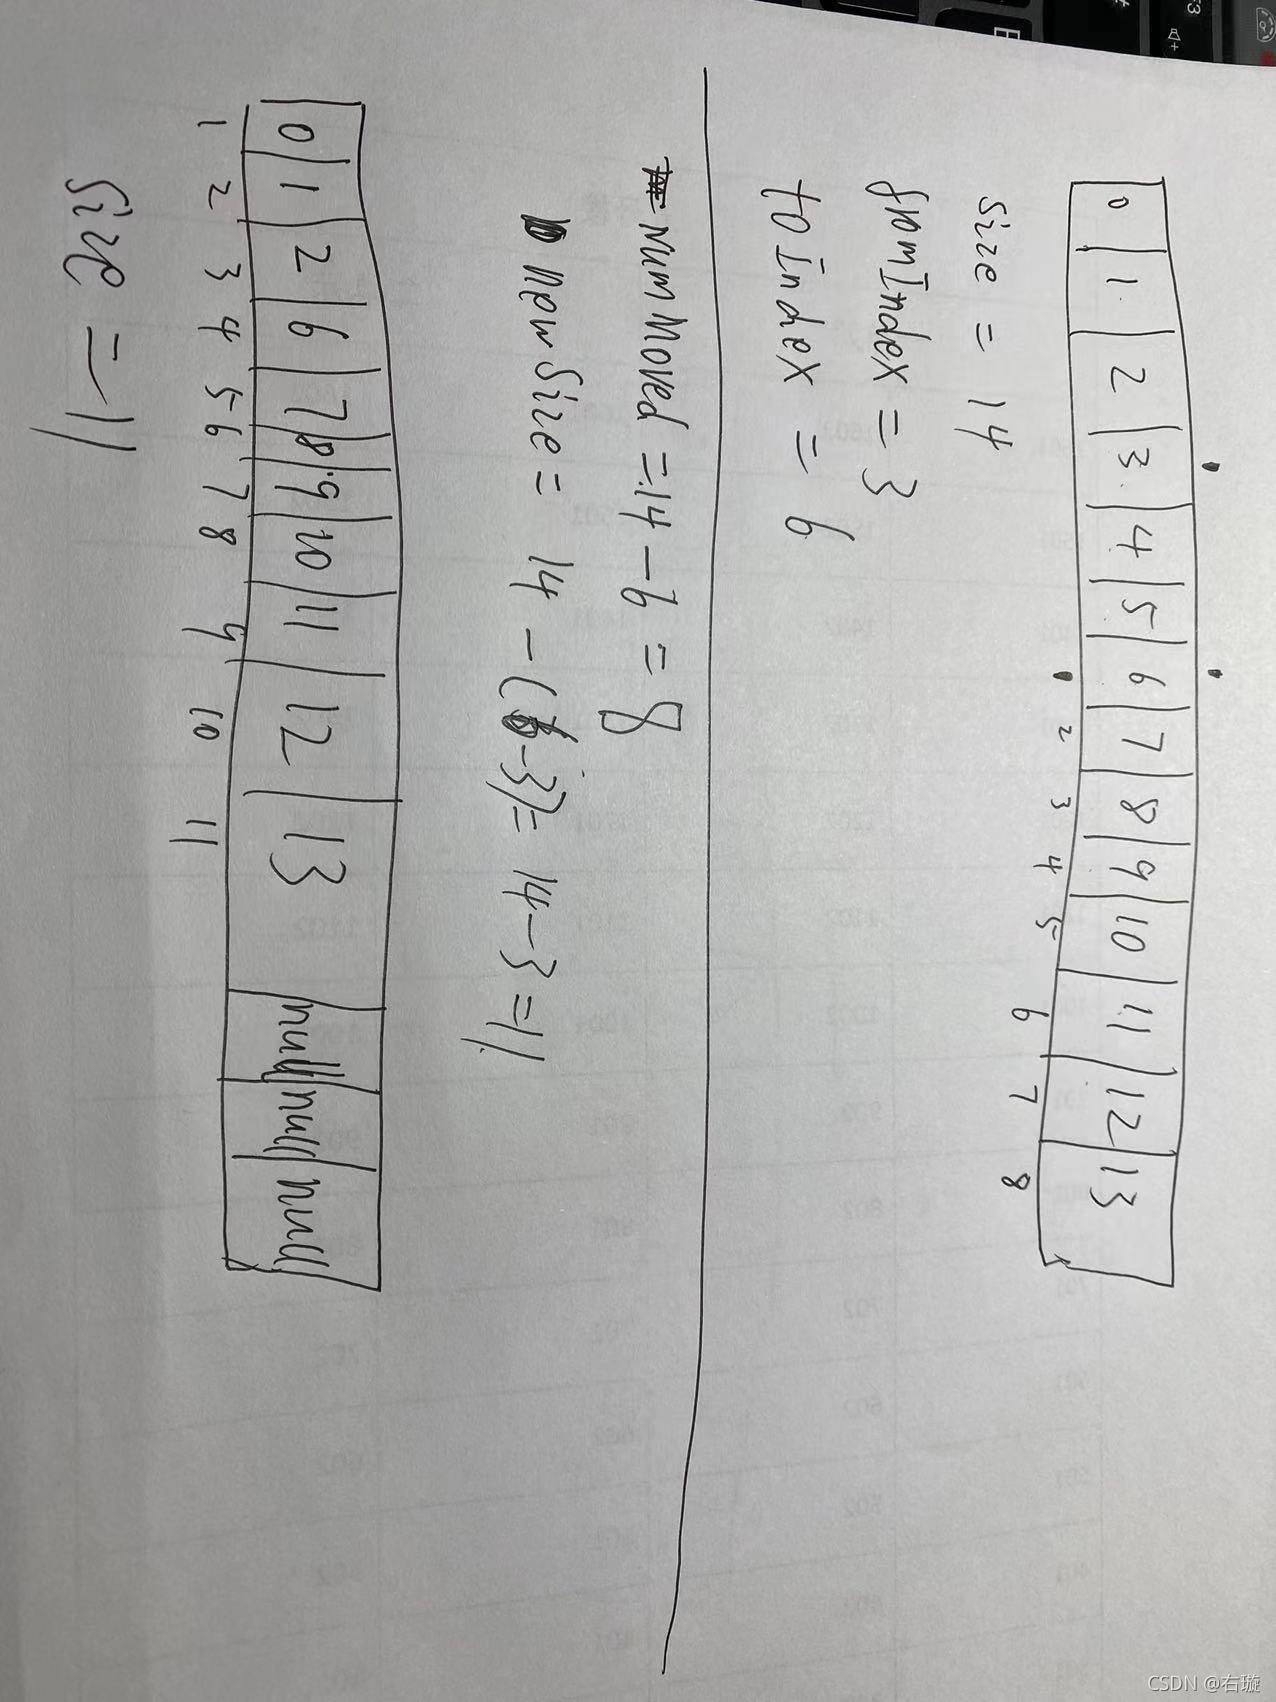 0 1 2 3 4 5 6 7 8 9 10 11 12 13
2 3 4 5 6 7 8
size = 14
fromIndex = 3
toIndex = 6
numMoved = 14 - 6 = 8
newSize = 14 - (6-3) = 14 - 3 = 11
0 1 2 6 7 8 9 10 11 12 13 null null null
1 2 3 4 5 6 7 8 9 10 11
Size = 11
CSDN @右璇